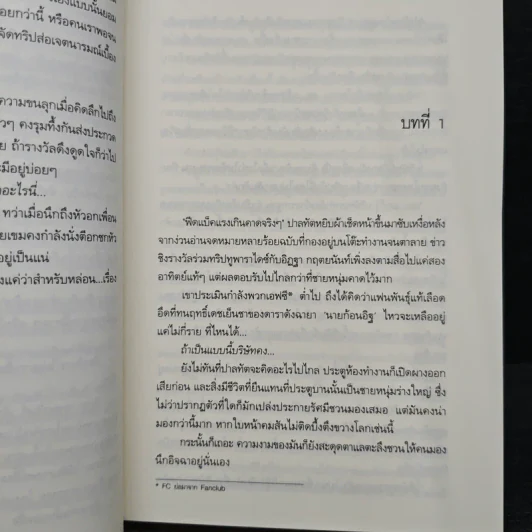 องแบบนั้นยอม
อยกว่านี้ หรือคนเราพอจน
จัดทริปส่อเจตนารมณ์เบื้อง
ความขนลุกเมื่อคิดลึกไปถึง
วๆ คงรุมทึ้งกันส่งประกวด
ย ถ้ารางวัลดึงดูดใจก็ว่าไป
มีอยู่บ่อยๆ
อะไรนี่...
ทว่าเมื่อนึกถึงหัวอกเพื่อน
ยเขมคงกำลังนั่งตีอกชกหัว
อยู่เป็นแน่
งแค่ว่าสำหรับหล่อน...เรื่อง
บทที่ 1
'ฟีดแบ็คแรงเกินคาดจริงๆ' ปาลทัตหยิบผ้าเช็ดหน้าขึ้นมาซับเหงื่อหลัง
จากง่วนอ่านจดหมายหลายร้อยฉบับที่กองอยู่บนโต๊ะทำงานจนตาลาย ข่าว
ชิงรางวัลร่วมทริปทูพาราไดซ์กับอิฏฐา กฤตยนันท์เพิ่งลงตามสื่อไปแค่สอง
อาทิตย์แท้ๆ แต่ผลตอบรับไปไกลกว่าที่ชายหนุ่มคาดไว้มาก
เขาประเมินกำลังพวกเอฟซี* ต่ำไป ถึงได้คิดว่าแฟนพันธุ์แท้เลือด
อึดที่ทนฤทธิ์เดชเย็นชาของดาราดังฉายา 'นายก้อนอิฐ' ไหวจะเหลืออยู่
แค่ไม่กี่ราย ที่ไหนได้...
ถ้าเป็นแบบนี้บริษัทคง...
ยังไม่ทันที่ปาลทัตจะคิดอะไรไปไกล ประตูห้องทำงานก็เปิดผางออก
เสียก่อน และสิ่งมีชีวิตที่ยืนแทนที่ประตูบานนั้นเป็นชายหนุ่มร่างใหญ่ ซึ่ง
ไม่ว่าปรากฏตัวที่ใดก็มักเปล่งประกายรัศมีชวนมองเสมอ แต่มันคงน่า
มองกว่านี้มาก หากใบหน้าคมสันไม่ติดบึ้งตึงขวางโลกเช่นนี้
กระนั้นก็เถอะ ความงามของมันก็ยังสะดุดตาแตะตะลึงชวนให้คนมอง
นึกอิจฉาอยู่นั่นเอง
* FC ย่อมาจาก Fanclub